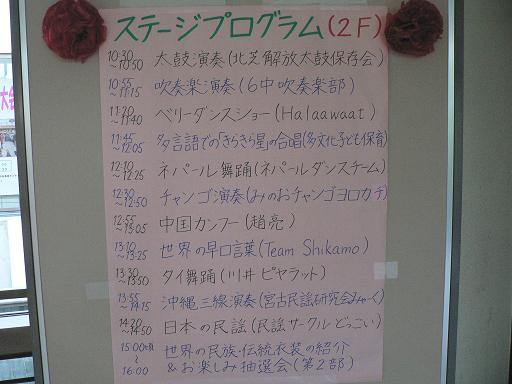 ステージプログラム(2F)
10:30~10:50 太鼓演奏(北芝解放太鼓保存会)
10:55~11:15 吹奏楽演奏(6中吹奏楽部)
11:20~11:40 ベリーダンスショー(Halaawaat)
11:45~12:05 多言語での「きらきら星」の合唱(多文化子ども保育)
12:10~12:25 ネパール舞踊(ネパールダンスチーム)
12:30~12:50 チャンゴ演奏(みのおチャンゴヨロカヂ)
12:55~13:05 中国カンフー(趙亮)
13:10~13:25 世界の早口言葉(Team Shikamo)
13:30~13:50 タイ舞踊(川井ピヤラット)
13:55~14:15 沖縄三線演奏(宮古民謡研究会みゃーく)
14:20~14:50 日本の民謡(民謡サークルどっこい)
15:00頃~16:00 世界の民族・伝統衣装の紹介
&お楽しみ抽選会(第2部)